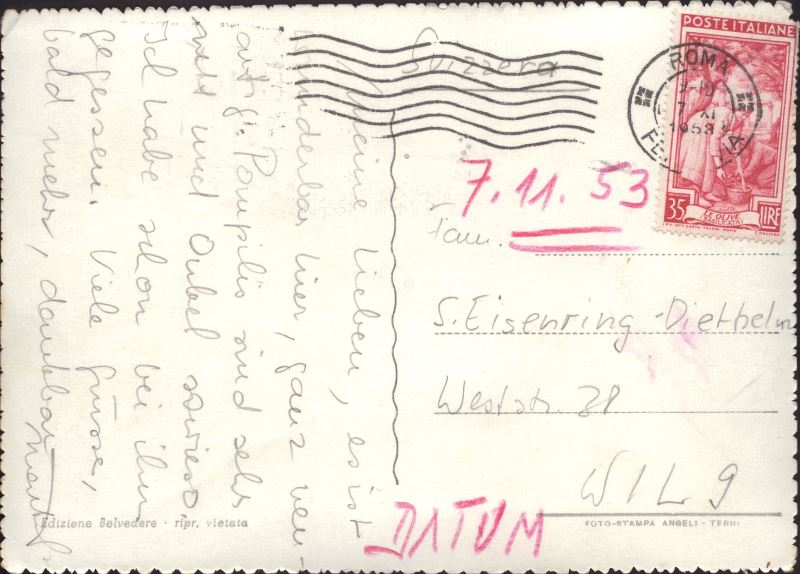 Meine Lieben, es ist
wunderbar hier, ganz neu-
artig. Pompilis sind sehr
nett und Onkel sowieso.
Ich habe schon bei ihm
gegessen. Viele Grüsse,
bald mehr, dankbar
Edizione Belvedere - ripr. vietata
Svizzera
POSTE ITALIANE
ROMA
7 XI
1953
35 LIRE
LE OLIVE
(BASILICATA)
7.11.53
Fam.
S. Eisenring-Diethelm
Weststr. 28
WIL 9
DATUM
FOTO-STAMPA ANGELI - TERNI